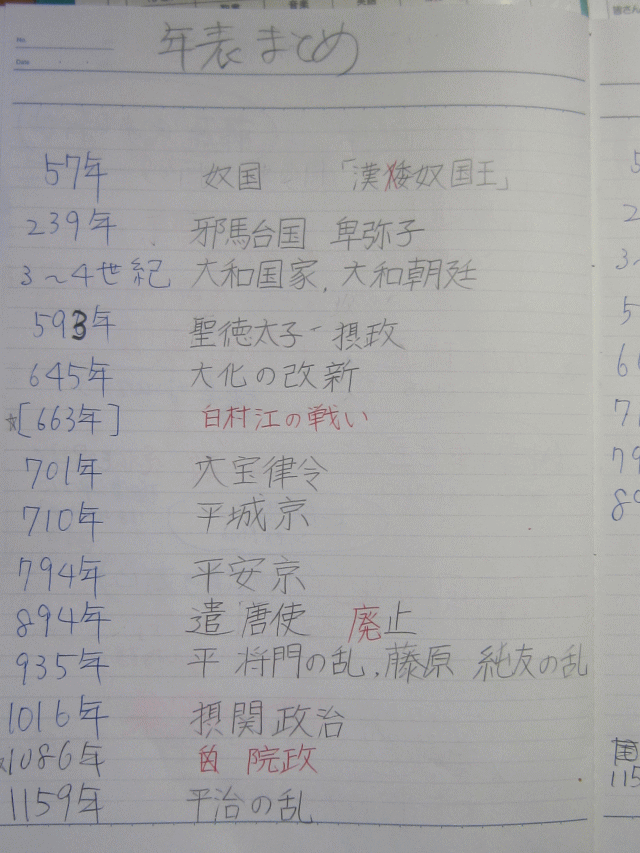 No.
Date
年表 まとめ
57年 奴国 「漢倭奴国王」
239年 邪馬台国 卑弥子
3~4世紀 大和国家, 大和朝廷
593年 聖徳太子- 摂政
645年 大化の改新
☆[663年] 白村江の戦い
701年 大宝律令
710年 平城京
794年 平安京
894年 遣唐使 廃止
935年 平 将門の乱, 藤原 純友の乱
1016年 摂関政治
1086年 院政
1159年 平治の乱